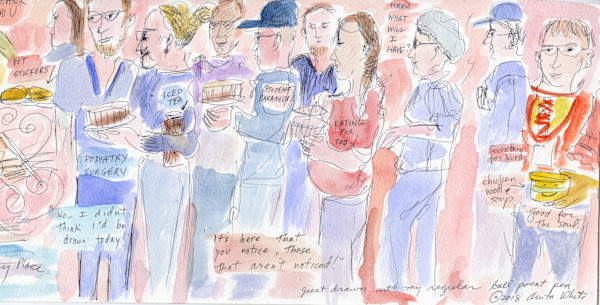 THANK
YOU
POT
STICKERS
ICED
TEA
PODIATRY
SURGERY
"No.. I didn't
think I'd be
drawn today!"
Place
It's here that
you notice, those
that aren't noticed!"
STUDENT
EATING
FOR
TWO
HMMM
WHAT
WILL
I
HAVE?
Secretary
for Nursing
chicken
noodle
soup
"good for
the soul"
just drawn with my regular ball point pen
©2018 Anita White